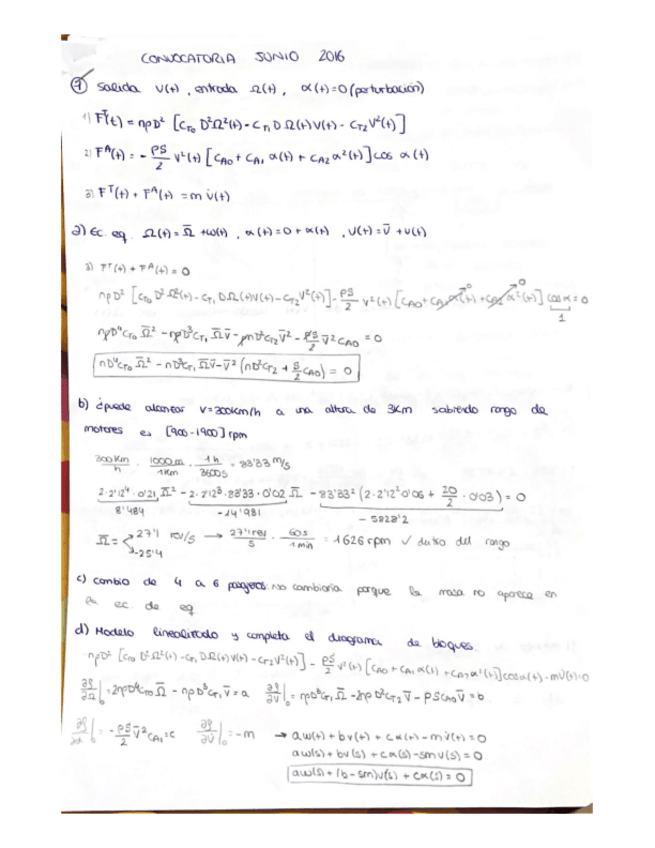 CONVOCATORIA JUNIO 2016
① Salida V(t), entrada Ω(t), α(t)=0 (perturbación)
1) F^T(t) = nρD² [C_T0 D²Ω²(t) - C_T1 DΩ(t)V(t) - C_T2 V²(t)]
2) F^A(t) = - ρS/2 V²(t) [C_A0 + C_A1 α(t) + C_A2 α²(t)] cos α(t)
3) F^T(t) + F^A(t) = m v̇(t)
a) Ec. eq. Ω(t) = Ω̄ + ω(t), α(t) = 0 + α(t), V(t) = V̄ + v(t)
3) F^T(t) + F^A(t) = 0
nρD² [C_T0 D²Ω²(t) - C_T1 DΩ(t)V(t) - C_T2 V²(t)] - ρS/2 V²(t) [C_A0 + C_A1 α(t) + C_A2 α²(t)] cos α = 0
0 0 1
nρD⁴C_T0 Ω̄² - nρD³C_T1 Ω̄V̄ - ρnD²C_T2 V̄² - ρS/2 V̄² C_A0 = 0
nD⁴C_T0 Ω̄² - nD³C_T1 Ω̄V̄ - V̄² (nD²C_T2 + S/2 C_A0) = 0
b) ¿puede alcanzar V=300km/h a una altura de 3km sabiendo rango de
motores es [900-1900] rpm
300km/h · 1000m/1km · 1h/3600s = 83'33 m/s
2·2'12⁴·0'21 Ω̄² - 2·2'12³·83'33·0'02 Ω̄ - 83'33² (2·2'12²·0'06 + 20/2 · 0'03) = 0
8'484 -14'981 - 5828'2
Ω̄ = 27'1 rev/s → 27'1 rev/s · 60s/1min = 1626 rpm ✓ dentro del rango
-25'4
c) Cambio de 4 a 6 pasajeros. No cambiaría porque la masa no aparece en
la ec. de eq.
d) Modelo linealizado y completa el diagrama de bloques.
nρD² [C_T0 D²Ω²(t) - C_T1 DΩ(t)V(t) - C_T2 V²(t)] - ρS/2 V²(t) [C_A0 + C_A1 α(t) + C_A2 α²(t)] cos α(t) - m v̇(t) = 0
∂f/∂Ω|₀ = 2nρD⁴C_T0 Ω̄ - nρD³C_T1 V̄ = a ∂f/∂V|₀ = -nρD³C_T1 Ω̄ - 2nρD²C_T2 V̄ - ρS C_A0 V̄ = b
∂f/∂α|₀ = - ρS/2 V̄² C_A1 = c ∂f/∂V̇|₀ = -m → aω(t) + bv(t) + cα(t) - m v̇(t) = 0
aω(s) + bv(s) + cα(s) - smv(s) = 0
aω(s) + (b - sm)v(s) + cα(s) = 0